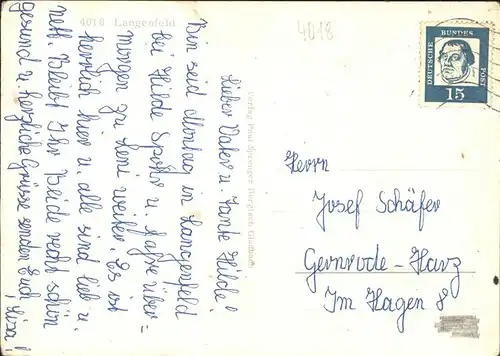 4018 Langenfeld
4018
Lieber Vater u. Tante Hilde!
Bin seid Montag in Langenfeld
bei Hilde Spohr u. fahre über=
morgen zu Leni weiter. Es ist
herrlich hier u. alle sind lieb u.
nett. Bleibt Ihr Beide recht schön
gesund u. herzliche Grüsse senden Euch
Verlag Paul
DEUTSCHE BUNDES POST
15
Herrn
Josef Schäfer
Gernrode-Harz
Im Hagen 8